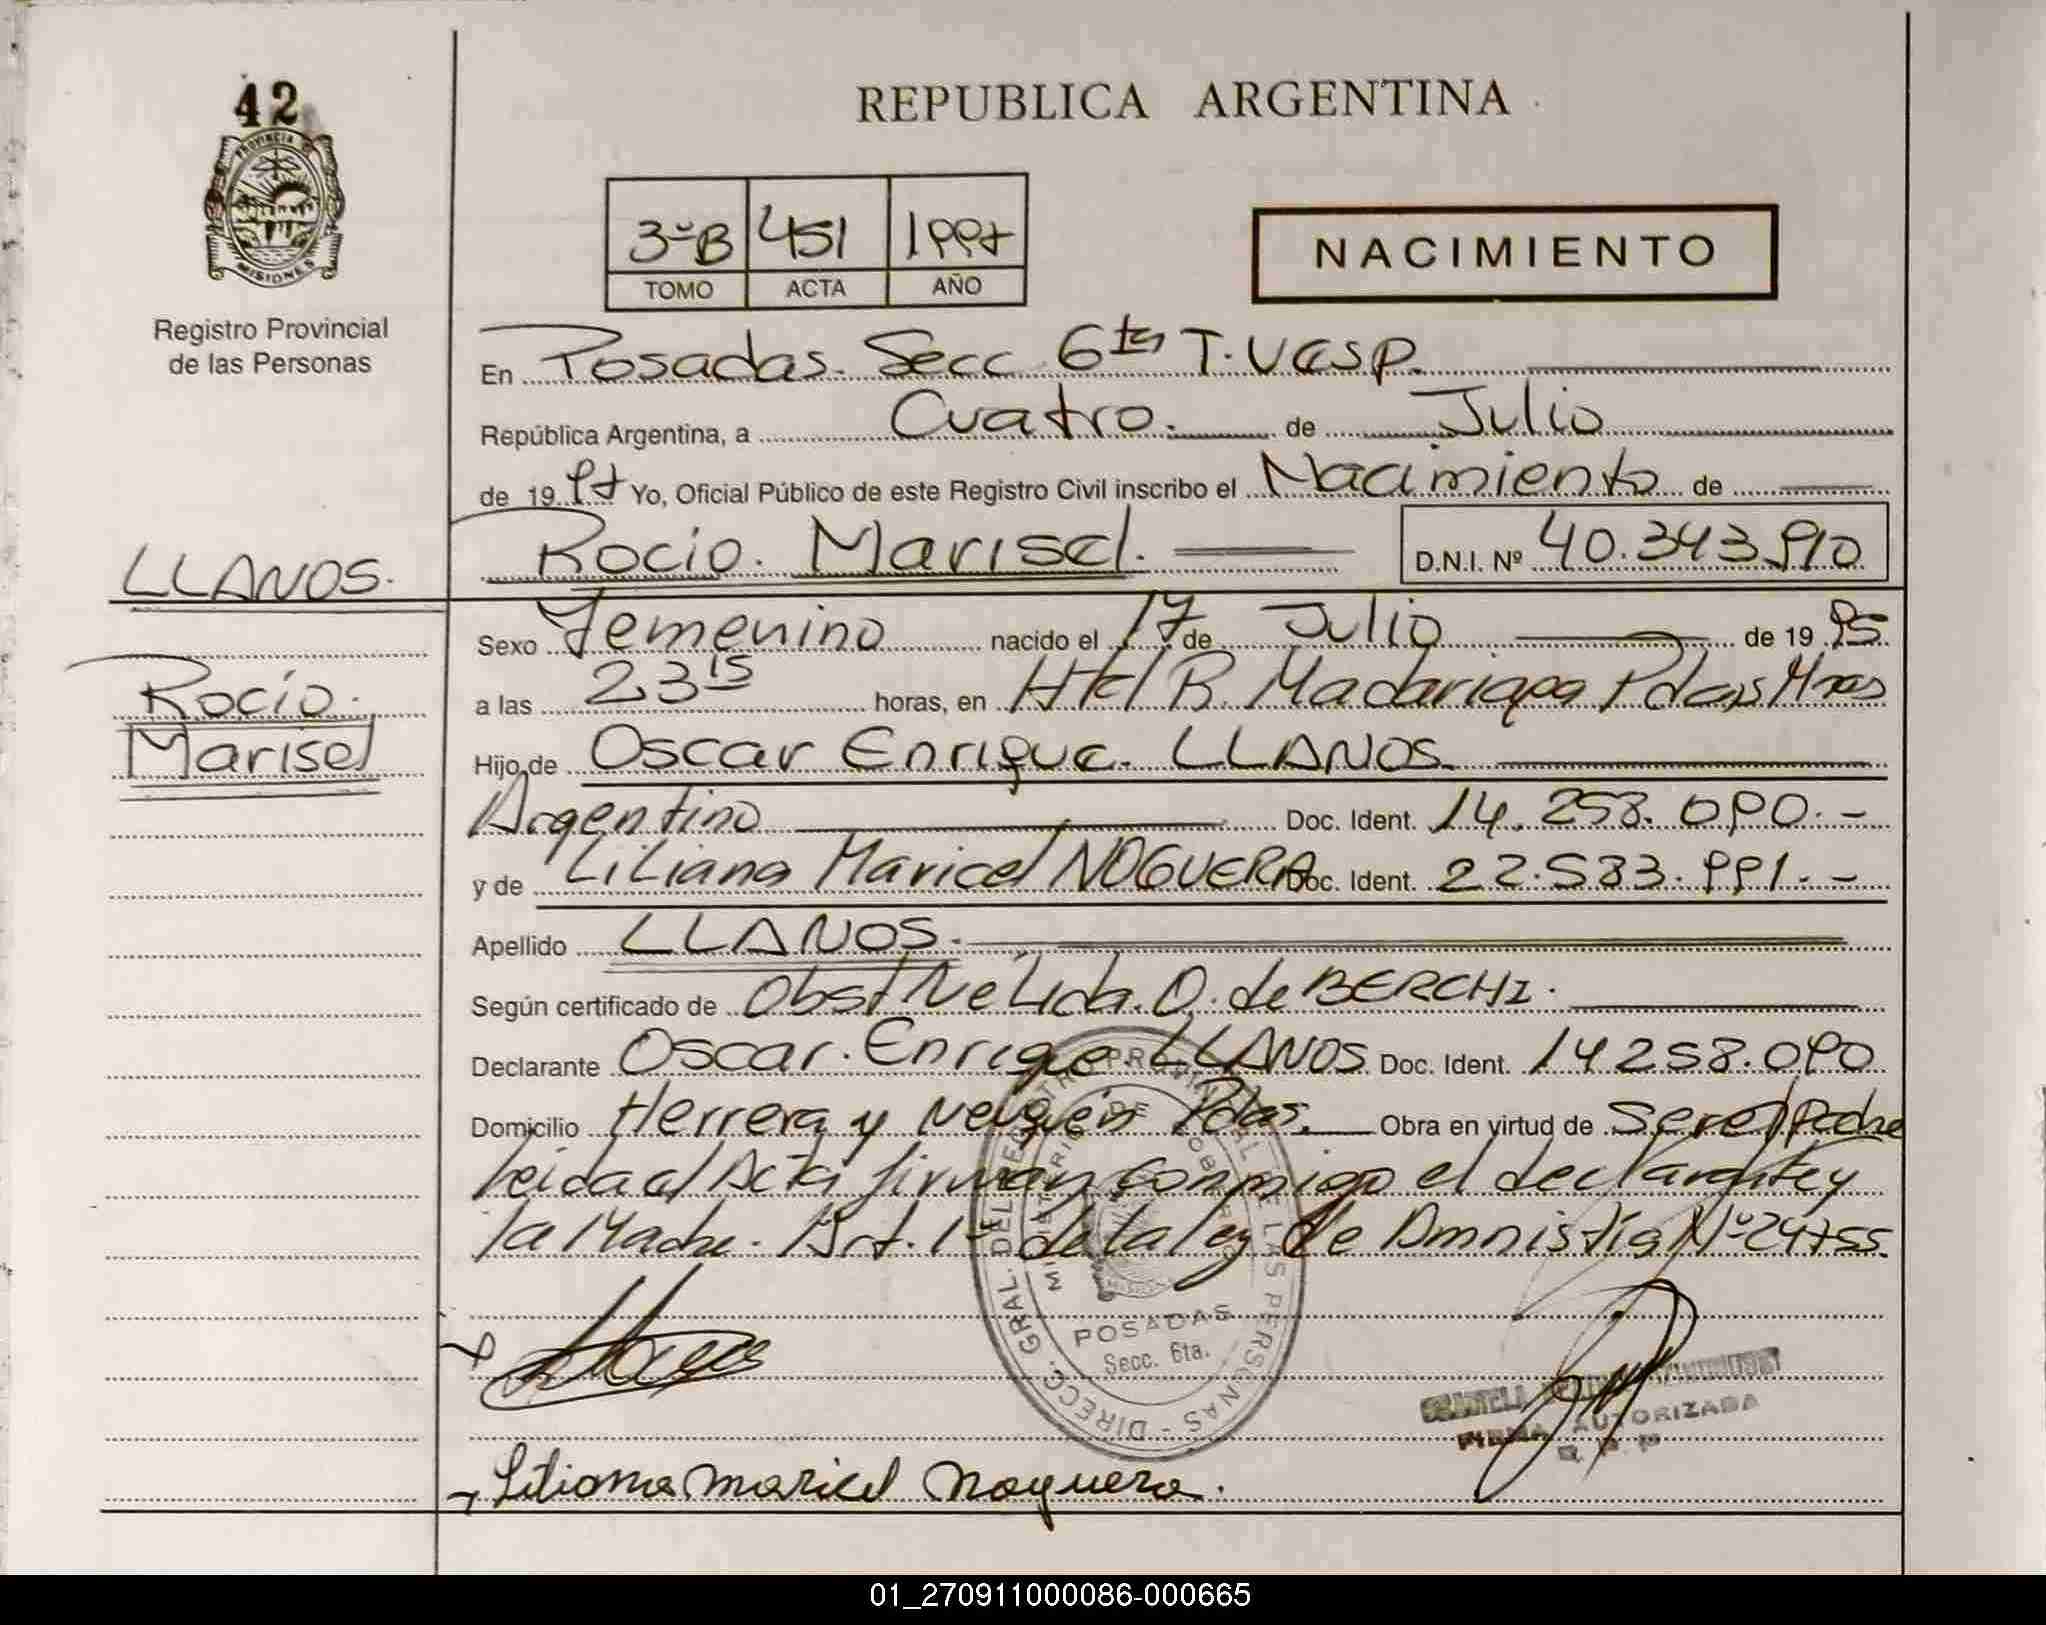 42
PROVINCIA DE
MISIONES
Registro Provincial
de las Personas
REPUBLICA ARGENTINA
3ºB 451 1997
TOMO ACTA AÑO
NACIMIENTO
En Posadas. Secc 6ta T. Vesp.
República Argentina, a Cuatro. de Julio
de 1997 Yo, Oficial Público de este Registro Civil inscribo el Nacimiento de
Rocio. Marisel. D.N.I. Nº 40.343.910
LLANOS.
Rocío.
Marisel
Sexo Femenino nacido el 17 de Julio de 1995
a las 23 15 horas, en Htal R. Madariaga Pdas Mnes
Hijo de Oscar Enrique. LLANOS.
Argentino Doc. Ident. 14.258.090.-
y de Liliana Maricel NOGUERA Doc. Ident. 22.583.991.-
Apellido LLANOS.
Según certificado de Obst Nelida. O. de BERCHI.
Declarante Oscar. Enrique LLANOS Doc. Ident. 14258.090
Domicilio Herrera y Neuquén Pdas. Obra en virtud de Ser el Padre
leida el Acta firman conmigo el declarante y
la Madre. Art. 1º de la ley de Amnistía Nº 24755.
DIRECC. GRAL. DEL REGISTRO PROVINCIAL DE LAS PERSONAS
MINISTERIO DE GOBIERNO
POSADAS
Secc. 6ta.
FIRMA AUTORIZADA
R. P. P.
Liliana Maricel Noguera.
01_270911000086-000665